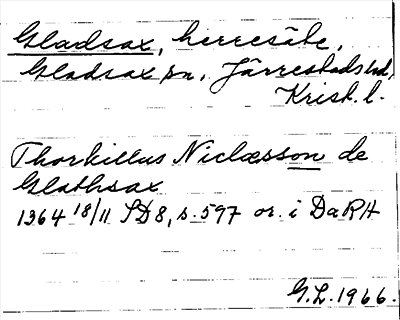 Gladsax, herresäte,
Gladsax sn, Järrestads hd,
Krist. l.
Thorkillus Niclæsson de
Glathsax
1364 18/11 SD8, s. 597 or. i DaRA
G.L. 1966.